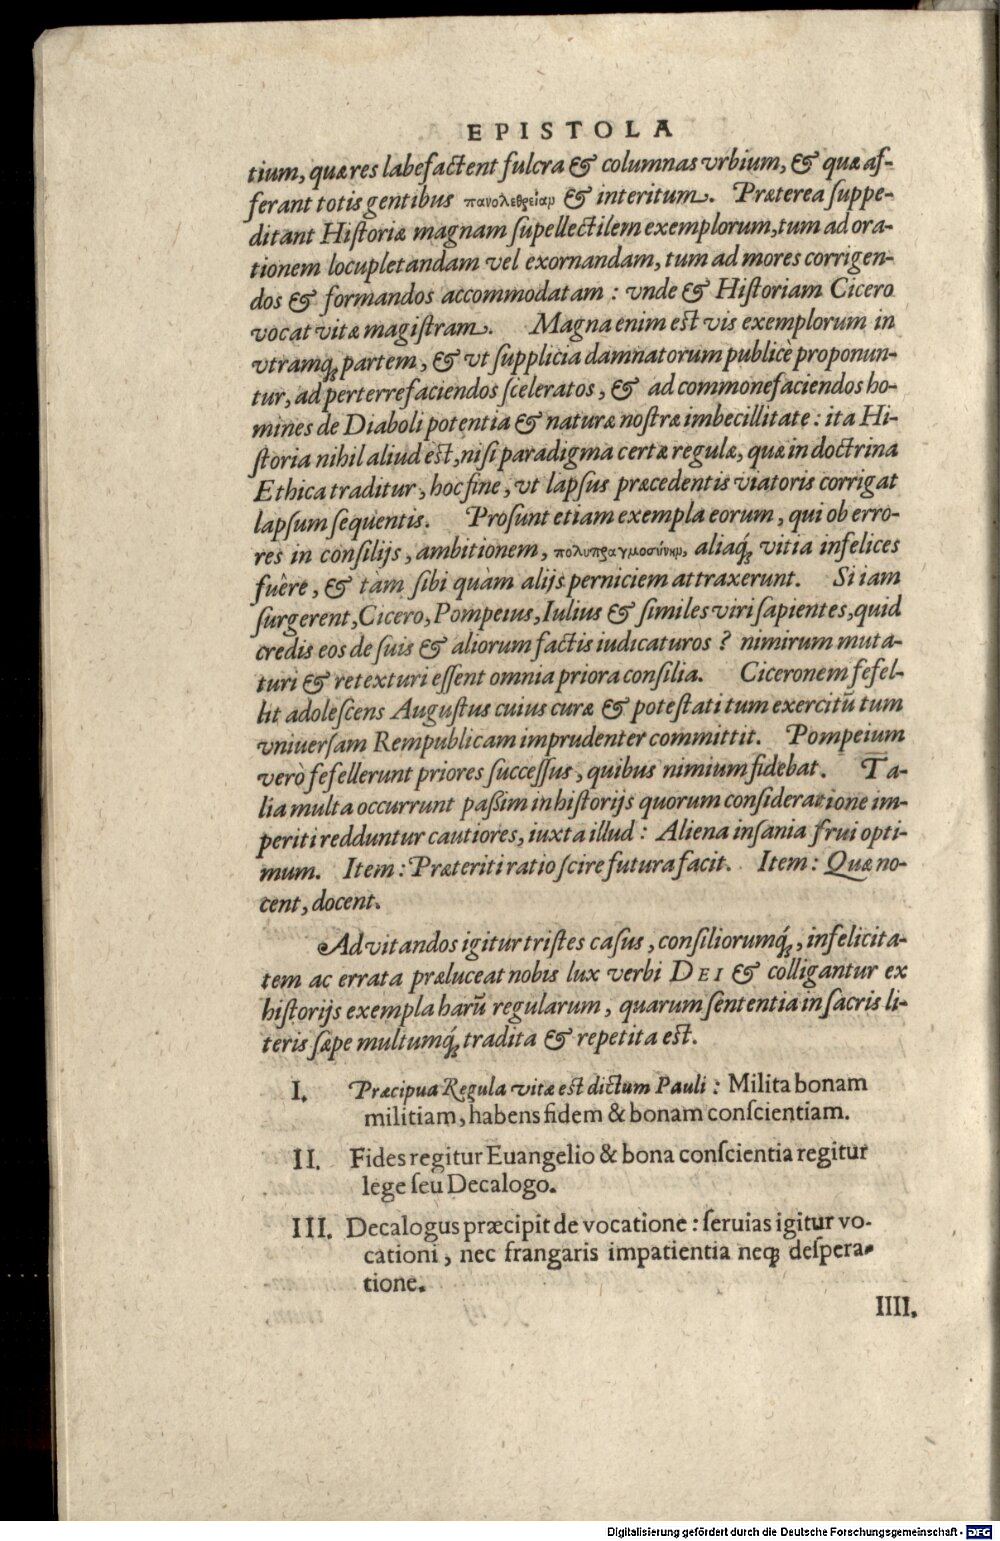 EPISTOLA
tium, quæ res labefactent fulcra & columnas vrbium, & quæ aſ-
ferant totis gentibus πανολεθρείαμ & interitum. Præterea ſuppe-
ditant Hiſtoriæ magnam ſupellectilem exemplorum, tum ad ora-
tionem locupletandam vel exornandam, tum ad mores corrigen-
dos & formandos accommodatam: vnde & Hiſtoriam Cicero
vocat vitæ magiſtram. Magna enim eſt vis exemplorum in
vtramq́ꝫ partem, & vt ſupplicia damnatorum publicè proponun-
tur, ad perterrefaciendos ſceleratos, & ad commonefaciendos ho-
mines de Diaboli potentia & naturæ noſtræ imbecillitate: ita Hi-
ſtoria nihil aliud eſt, niſi paradigma certæ regulæ, quæ in doctrina
Ethica traditur, hoc fine, vt lapſus præcedentis viatoris corrigat
lapſum ſequentis. Proſunt etiam exempla eorum, qui ob erro-
res in conſilijs, ambitionem, πολυπραγμοσύνημ, aliaq́ꝫ vitia infelices
fuêre, & tàm ſibi quàm alijs perniciem attraxerunt. Si iam
ſurgerent, Cicero, Pompeius, Iulius & ſimiles viri ſapientes, quid
credis eos de ſuis & aliorum factis iudicaturos? nimirum muta-
turi & retexturi eſſent omnia priora conſilia. Ciceronem fefel-
lit adoleſcens Auguſtus cuius curæ & poteſtati tum exercitū tum
vniuerſam Rempublicam imprudenter committit. Pompeium
verò fefellerunt priores ſucceſſus, quibus nimium fidebat. Ta-
lia multa occurrunt paßim in hiſtorijs quorum conſideratione im-
periti redduntur cautiores, iuxta illud: Aliena inſania frui opti-
mum. Item: Præteriti ratio ſcire futura facit. Item: Quæ no-
cent, docent.
Ad vitandos igitur triſtes caſus, conſiliorumq́ꝫ, infelicita-
tem ac errata præluceat nobis lux verbi DEI & colligantur ex
hiſtorijs exempla harū regularum, quarum ſententia in ſacris li-
teris ſæpe multumq́ꝫ tradita & repetita eſt.
I. Præcipua Regula vitæ eſt dictum Pauli: Milita bonam
militiam, habens fidem & bonam conſcientiam.
II. Fides regitur Euangelio & bona conſcientia regitur
lege ſeu Decalogo.
III. Decalogus præcipit de vocatione: ſeruias igitur vo-
cationi, nec frangaris impatientia neqꝫ deſpera-
tione.
IIII.
Digitalisierung gefördert durch die Deutsche Forschungsgemeinschaft - DFG